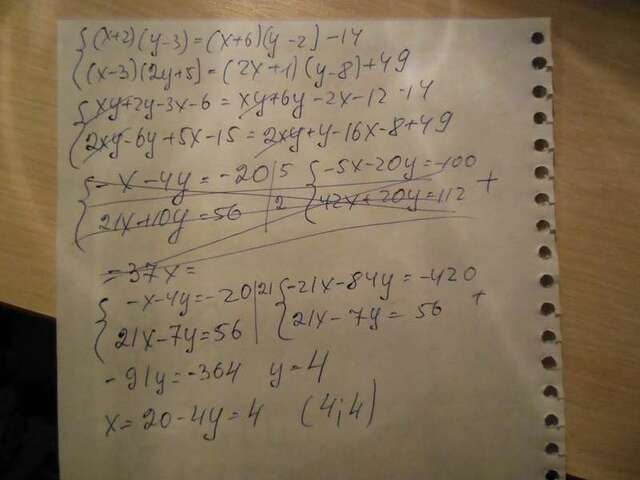 {(x+2)(y-3)=(x+6)(y-2]-14
{(x-3)(2y+5]=(2x+1)(y-8]+49
{xy+2y-3x-6=xy+6y-2x-12-14
{2xy-6y+5x-15=2xy+y-16x-8+49
{-x-4y=-20|5 {-5x-20y=-100
{21x+10y=56|2 {42x+20y=112 +
-37x=
{-x-4y=-20|21 {-21x-84y=-420
{21x-7y=56 {21x-7y=56 +
-91y=-364 y=4
x=20-4y=4 (4;4)